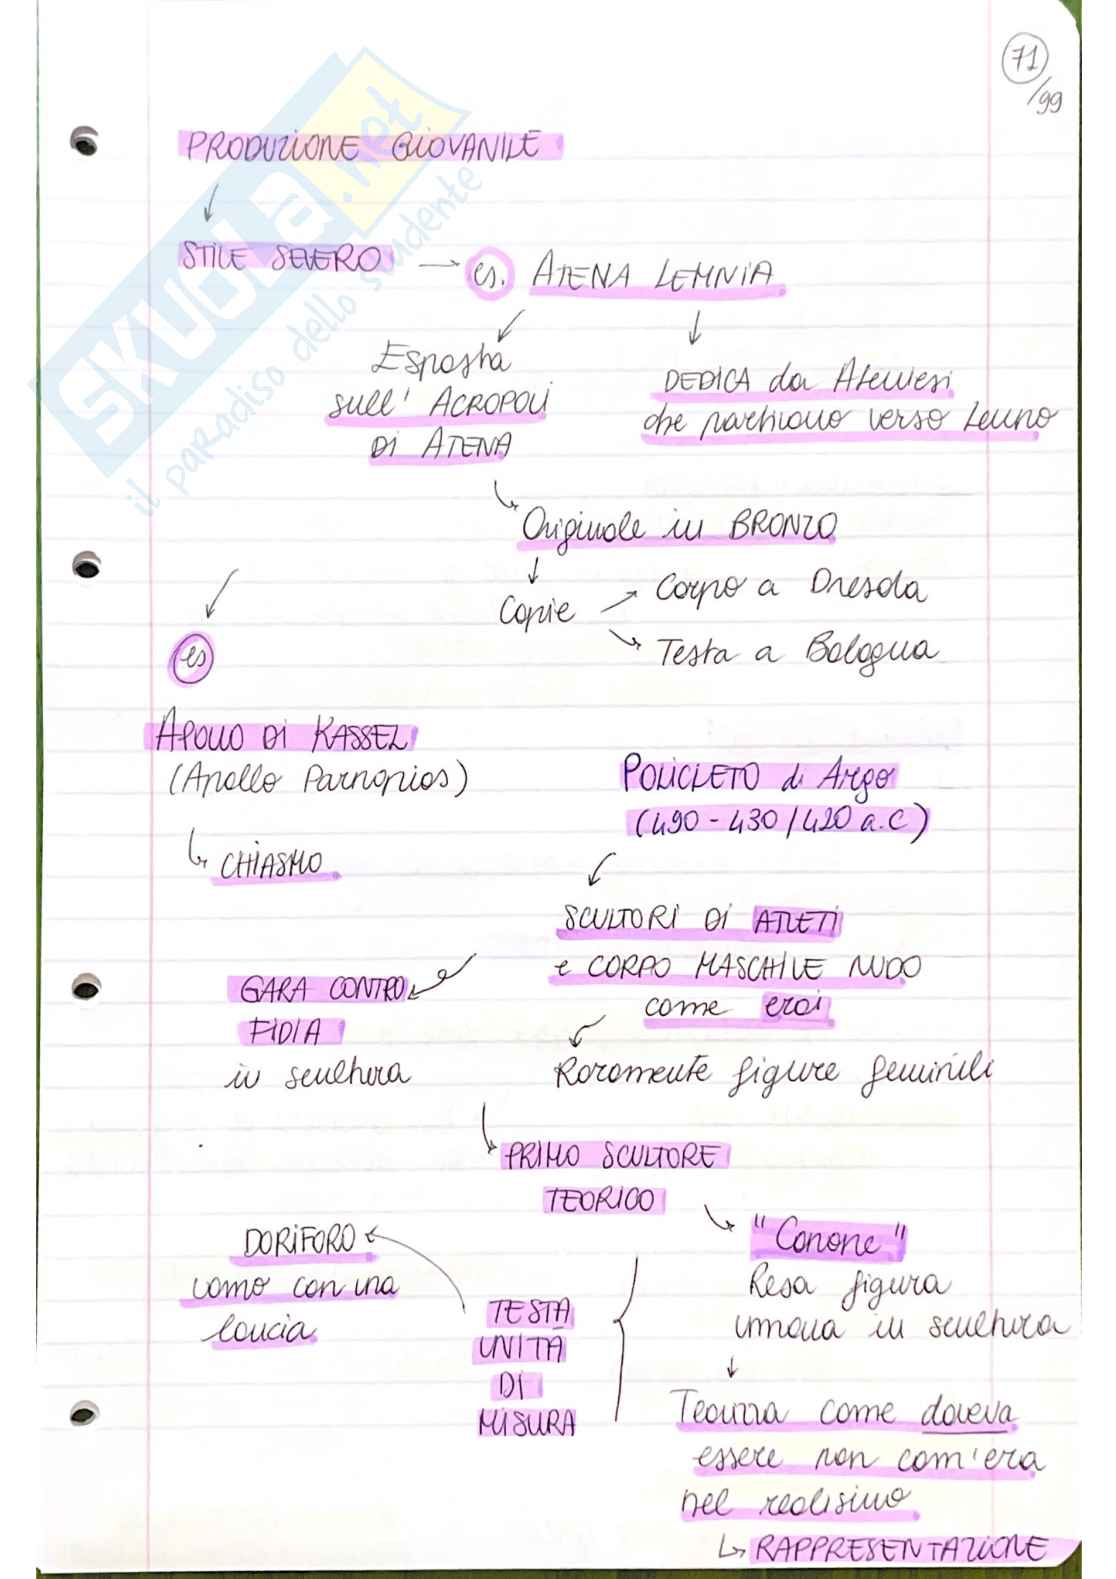 71/99
SKUOLa.net
il paradiso dello studente
PRODUZIONE GIOVANILE
STILE SEVERO → es. ATENA LEMNIA
Esposta
sull' ACROPOLI
DI ATENA
DEDICA da Ateniesi
che partirono verso Lemno
Originale in BRONZO
Copie
Corpo a Dresda
Testa a Bologna
es
APOLLO DI KASSEL
(Apollo Parnopios)
CHIASMO
POLICLETO di Argo
(490 - 430/420 a.C)
SCULTORI DI ATLETI
e CORPO MASCHILE NUDO
come eroi
GARA CONTRO
FIDIA
in scultura
Raramente figure femminili
PRIMO SCULTORE
TEORICO
"Canone"
Resa figura
umana in scultura
DORIFORO
uomo con una
lancia
TESTA
UNITÀ
DI
MISURA
Teorizza come doveva
essere non com'era
nel realismo
RAPPRESENTAZIONE